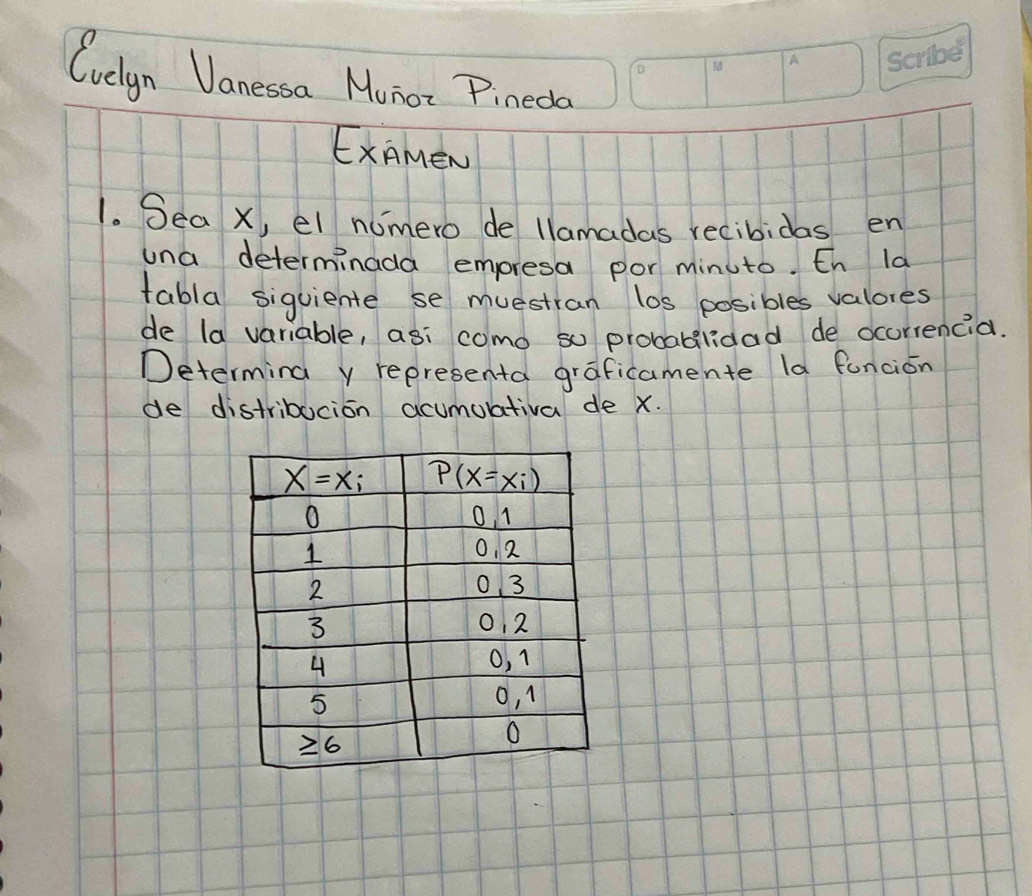 Evelyn Vanessa Muñoz Pineda
D M A
Scribe®
EXÁMEN
1. Sea X, el número de llamadas recibidas en
una determinada empresa por minuto. En la
tabla siguiente se muestran los posibles valores
de la variable, así como su probabilidad de ocurrencia.
Determina y representa gráficamente la función
de distribución acumulativa de X.
X=xi P(X=xi)
0 0,1
1 0,2
2 0,3
3 0,2
4 0,1
5 0,1
≥6 0